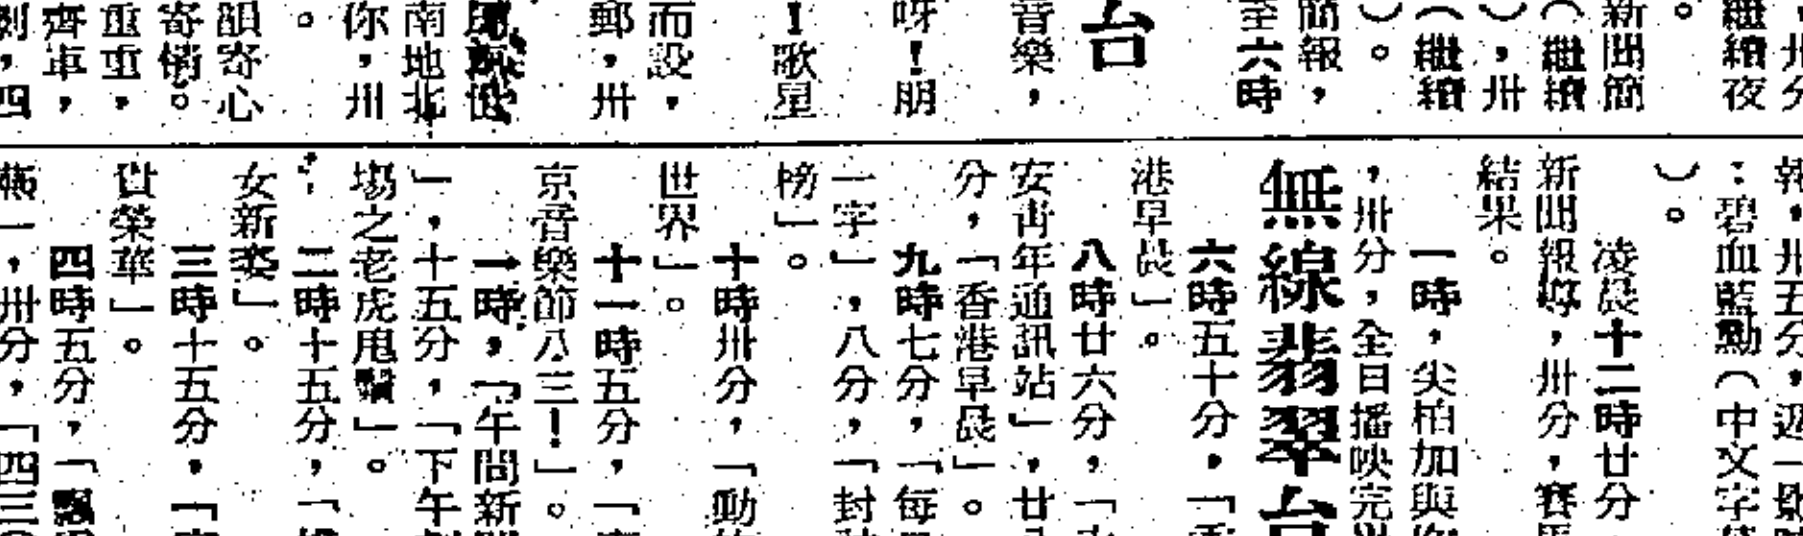 ，卅分
繼續夜
。
新聞簡
（繼續
），卅
（繼續
）。
簡報，
至六時
台
音樂，
呀！朋
！歌星
而設，
郵，卅
南地北
你，卅
。
韻寄心
寄悄。
重重，
齊車，
劇，四
報，卅五分，週一
：碧血藍勳（中文字
）。
凌晨十二時廿分
新聞報導，卅分，賽馬
結果。
一時，尖柏加與你
，卅分，全日播映完
無線翡翠台
六時五十分，「香
港早晨」。
八時廿六分，「
安青年通訊站」，廿
分，「香港早晨」。
九時七分，「每
一字」，八分，「封
榜」。
十時卅分，「動
世界」。
十一時五分，「
京音樂節八三！」。
一時，「午間新聞
」，十五分，「下午
場之老虎甩鬚」。
二時十五分，「
女新姿」。
三時十五分，「
世榮華」。
四時五分，「飄
燕一，卅分，「四三